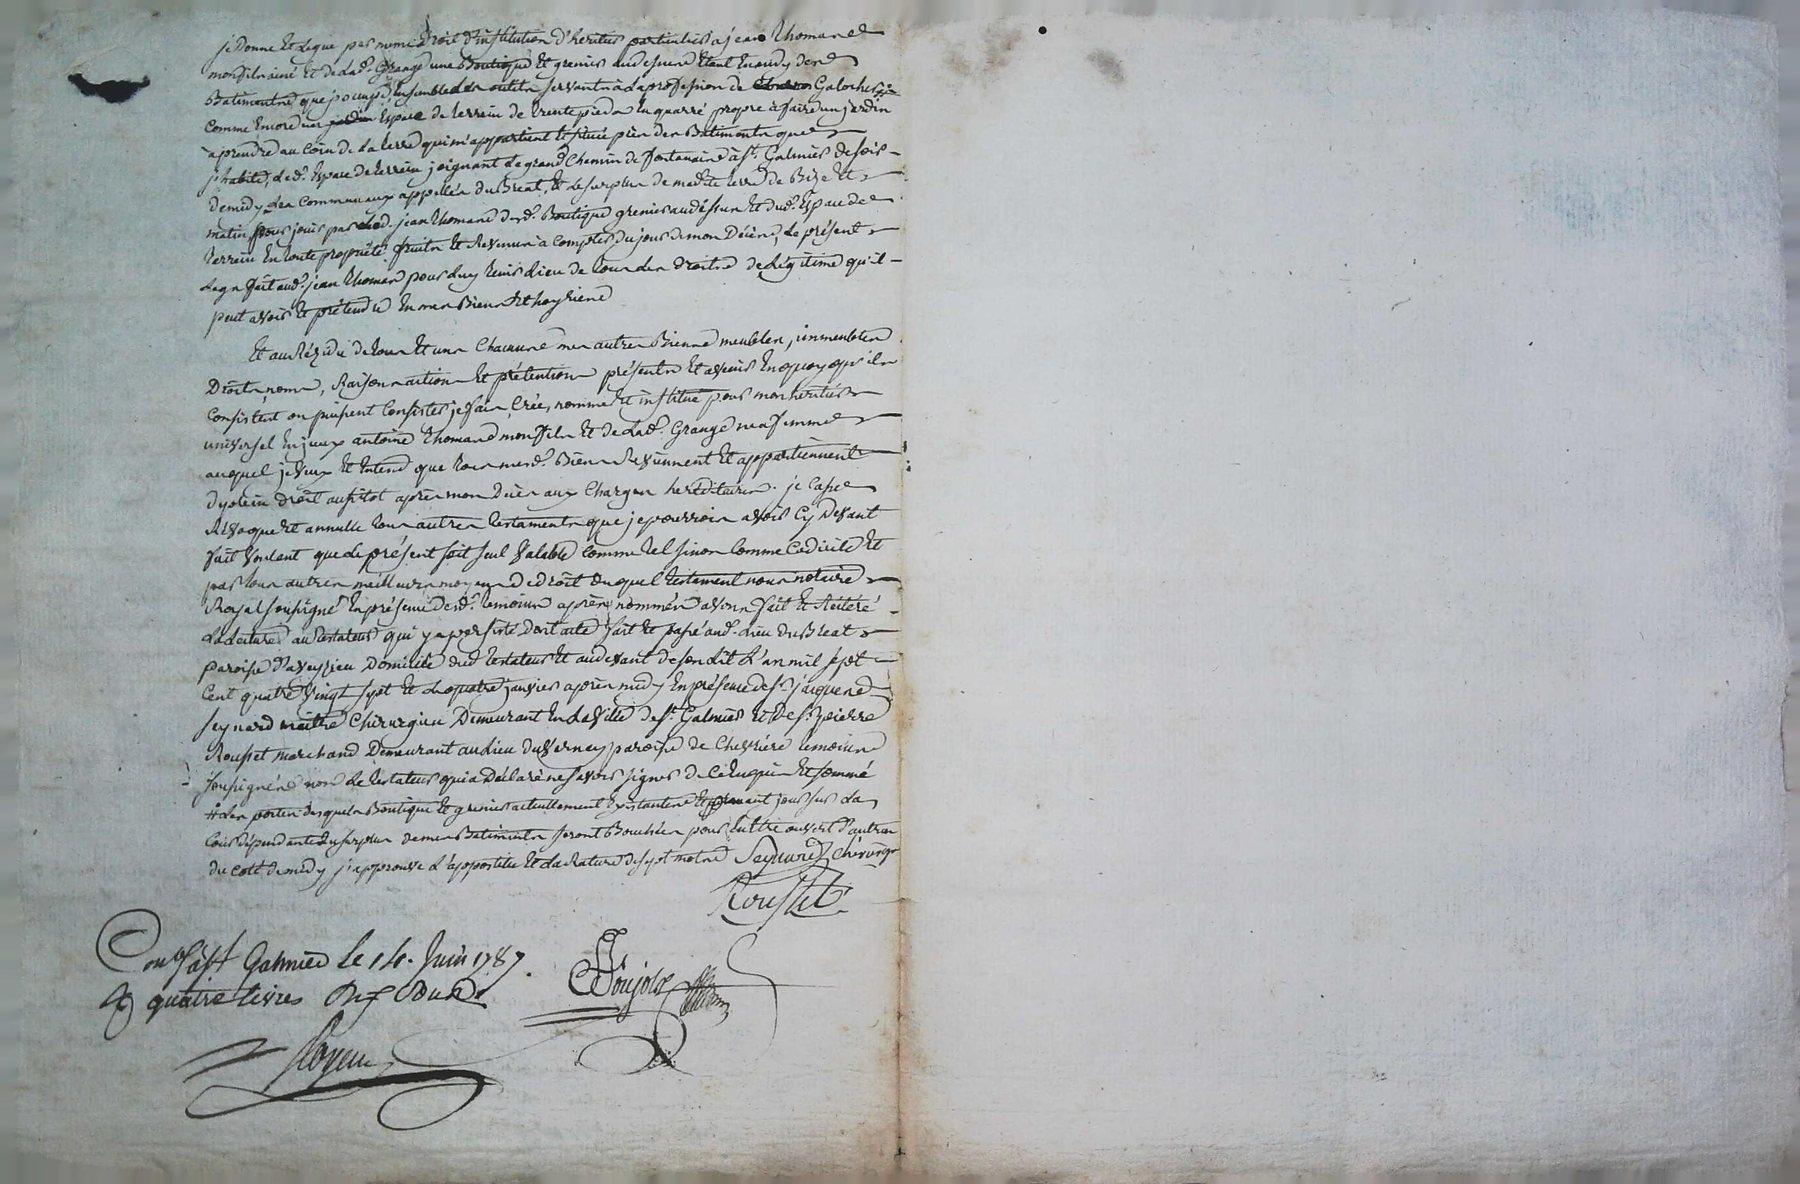 je donne et legue par mème droit d'institution d'heritier particulier a jean thomas
mon fils ainé et de lad. Grange une Boutique et grenier au dessus étant en midy des
Batiments que j'occupe, ensemble les outils servants a la profession de Galocher
comme encore un espace de terrein de trente pieds en quarré propre à faire un jardin
a prendre au coin de la terre qui m'appartient située près des Batiments que
j'habite, led. espace de terrein joignant le grand chemin de fontanaire à St. Galmier de soir
de midy les communaux appellés du Breat, et le surplus de madite terre de Bize et
matin pour jouir par led. jean thomas desd. Boutique grenier au dessus et dud. espace de
terrein en toute propriété fruits et revenus à compter du jour de mon décès, le présent
legs fait aud. jean thomas pour luy tenir lieu de tous les droits de légitime qu'il
peut avoir et prétendre en mes Biens et hoyrie
Et au Rézidu de tous et uns chacuns mes autres Biens meubles, immeubles
Droits, noms, Raisons actions et prétentions présents et avenir en quoy qu'ils
consistent ou puissent consister je fais, crée, nomme et institue pour mon heritier
universel en jceux antoine thomas mon fils et de lad. Grange ma femme
auquel je veux et entend que tous mesd. Biens reviennent et appartiennent
de plein droit aussitot après mon décès aux charges hereditaires. je casse
Revoque et annulle tous autres testaments que je pourrois avoir cy devant
fait voulant que le présent soit seul valable comme tel sinon comme codicile et
par tous autres meilleurs moyens de droit duquel testament nous notaire
Royal soussigné en présence desd. temoins après nommés avons fait et réiteré
la lecture au testateur qui y a persisté dont acte fait et passé aud. lieu du Breat
paroisse d'aveyzieu Domicile dud testateur et au devant de son lit l'an mil sept
cent quatre vingt sept et le quatre janvier après midy en présence de sr. jacques
seynard maitre chirurgien Demeurant en la ville de St. Galmier et de sr. pierre
Rousset marchand Demeurant au lieu du Verney paroisse de chevrière temoins
soussignés non le testateur qui a déclaré ne savoir signer de ce enquis et sommé
# les portes desquels Boutique et grenier actuellement existantes et prenant jour sur la
cour dépendante du surplus de mes Batiments seront Bouchées pour être ouvert d'autres
du coté de midy j'approuve l'appostille et la rature de sept mots Seynard chirurgn
Rousset
Conlé à St Galmier le 14. Juin 1787.
R quatre livres dix sous
Poujol
Royer